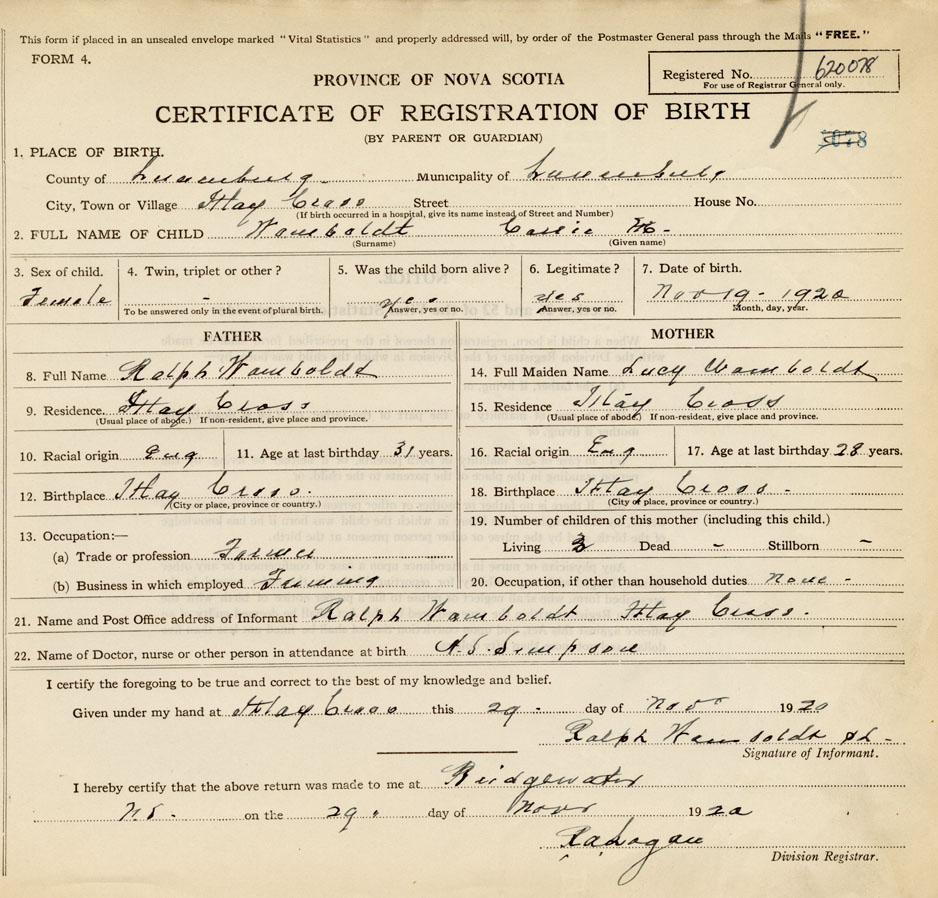 This form if placed in an unsealed envelope marked "Vital Statistics" and properly addressed will, by order of the Postmaster General pass through the Mails "FREE."
FORM 4.
Registered No. 620078
For use of Registrar General only.
PROVINCE OF NOVA SCOTIA
CERTIFICATE OF REGISTRATION OF BIRTH
(BY PARENT OR GUARDIAN)
1. PLACE OF BIRTH.
County of Lunenburg Municipality of Lunenburg
City, Town or Village Hay Cross Street House No.
(If birth occurred in a hospital, give its name instead of Street and Number)
2. FULL NAME OF CHILD Wamboldt Cassie
(Surname) (Given name)
3. Sex of child. 4. Twin, triplet or other? 5. Was the child born alive? 6. Legitimate? 7. Date of birth.
Female - yes yes Nov 19 - 1920
To be answered only in the event of plural birth. Answer, yes or no. Answer, yes or no. Month, day, year.
FATHER MOTHER
8. Full Name Ralph Wamboldt 14. Full Maiden Name Lucy Wamboldt
9. Residence. Hay Cross 15. Residence Hay Cross
(Usual place of abode.) If non-resident, give place and province. (Usual place of abode.) If non-resident, give place and province.
10. Racial origin Eng 11. Age at last birthday 31 years. 16. Racial origin Eng 17. Age at last birthday 28 years.
12. Birthplace Hay Cross. 18. Birthplace Hay Cross -
(City or place, province or country.) (City or place, province or country.)
19. Number of children of this mother (including this child.)
13. Occupation:—
Living 3 Dead - Stillborn -
(a) Trade or profession Farmer
(b) Business in which employed Farming 20. Occupation, if other than household duties none -
21. Name and Post Office address of Informant Ralph Wamboldt Hay Cross.
22. Name of Doctor, nurse or other person in attendance at birth Simpson
I certify the foregoing to be true and correct to the best of my knowledge and belief.
Given under my hand at Hay Cross this 29 - day of Nov 1920
Ralph Wamboldt
Signature of Informant.
I hereby certify that the above return was made to me at Bridgewater
N.S. on the 29 day of Nov 1920
Logan
Division Registrar.